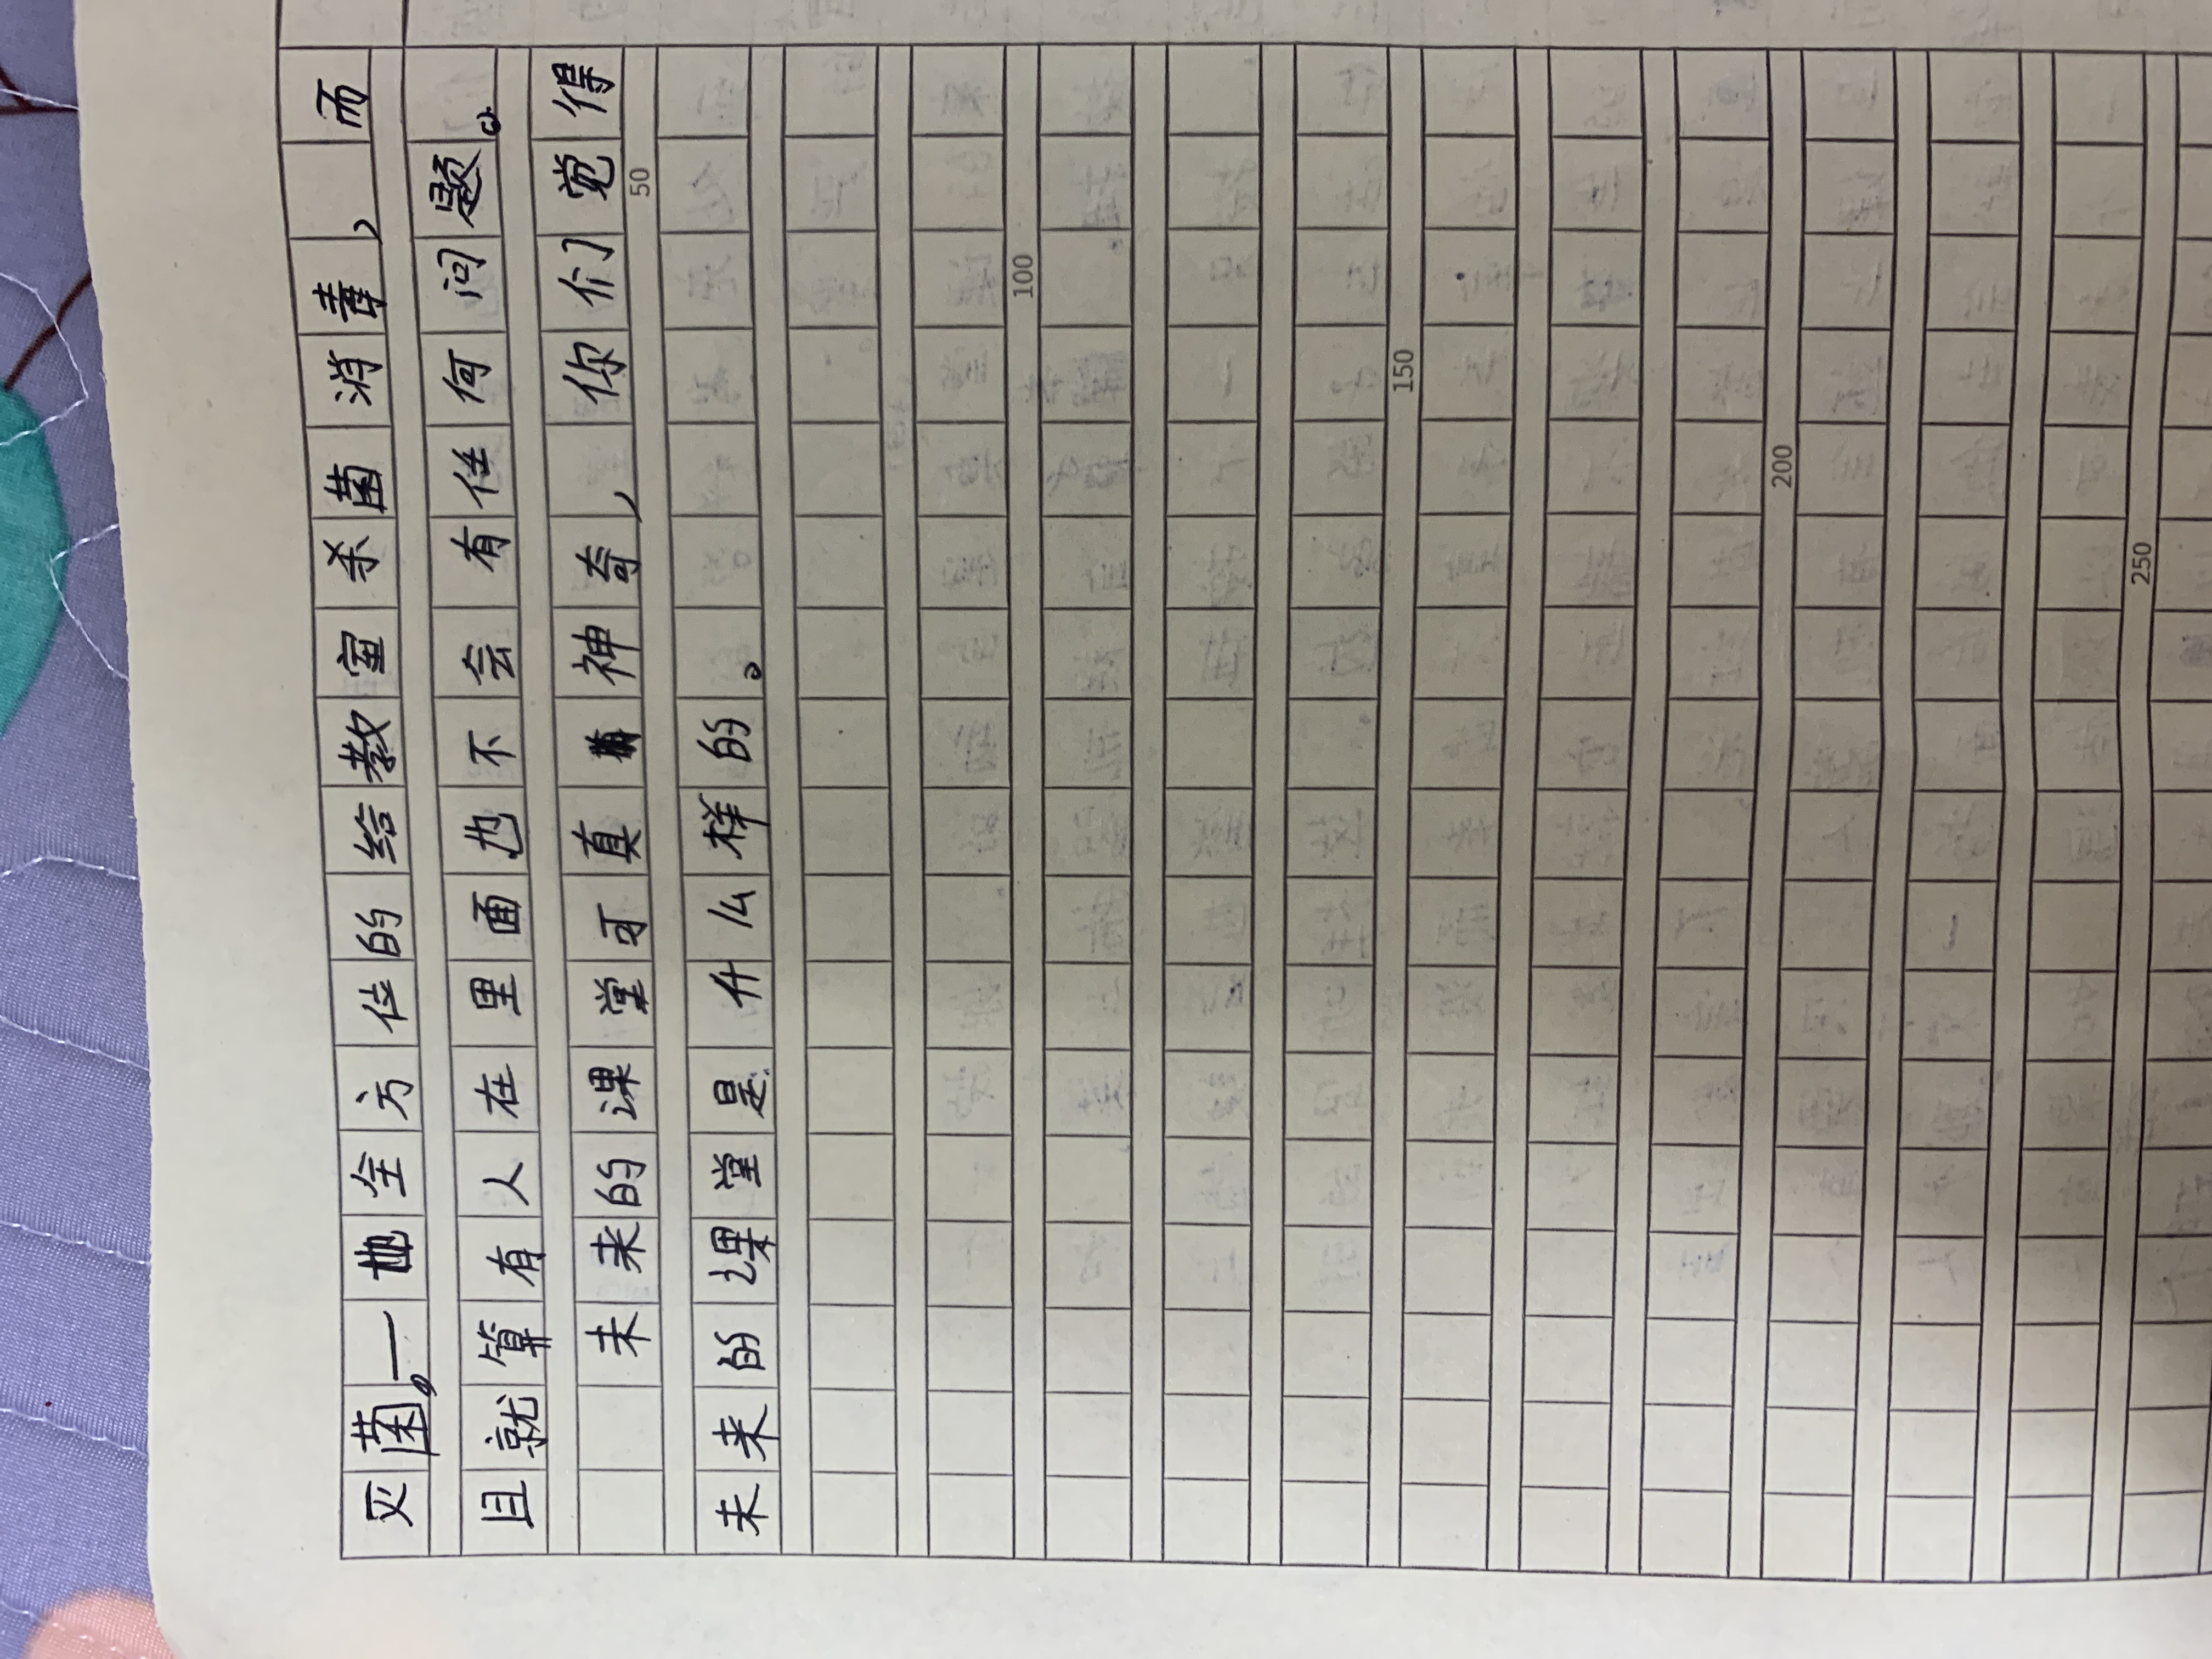 灭菌，一地全方位的给教室杀菌消毒，而
且就算有人在里面也不会有任何问题。
未来的课堂可真神奇，你们觉得
50
未来的课堂是什么样的。
100
150
200
250